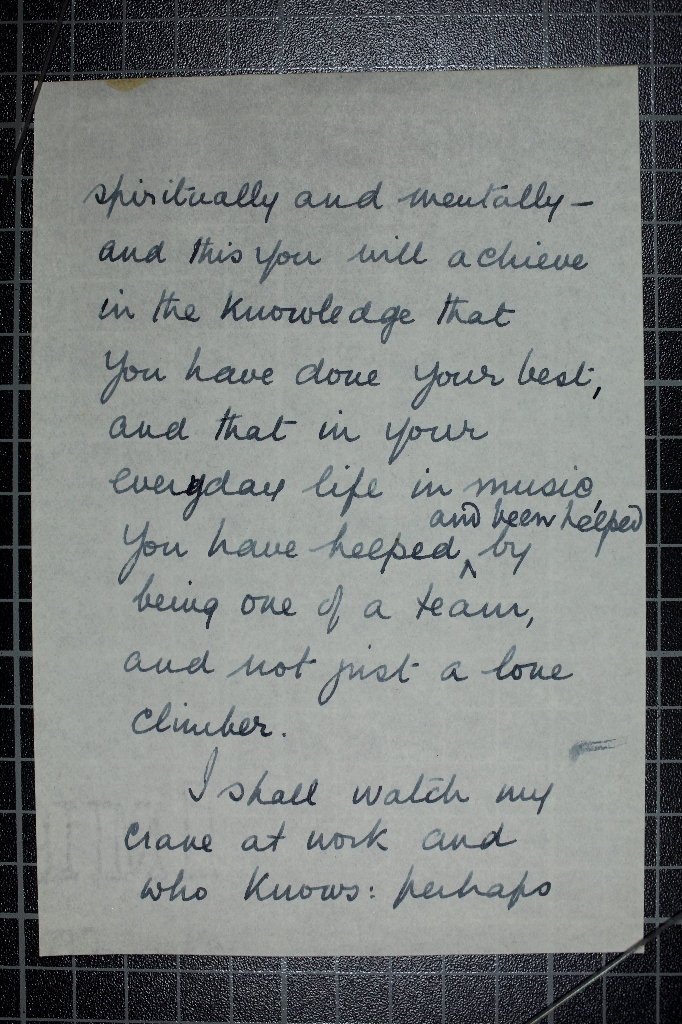 spiritually and mentally –
and this you will achieve
in the knowledge that
you have done your best,
and that in your
everyday life in music,
and been helped
you have helped ‸ by
being one of a team,
and not just a lone
climber.
I shall watch my
crane at work and
who knows: perhaps